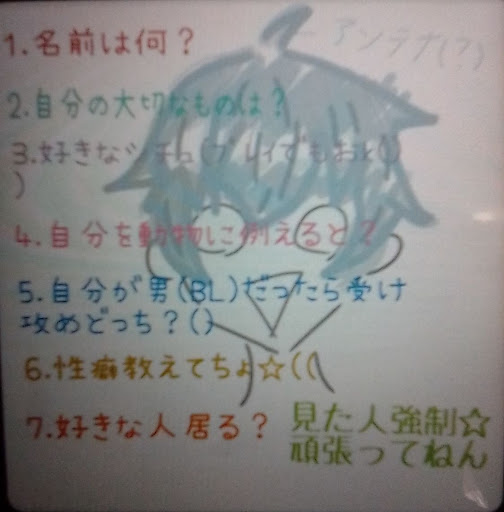 アンテナ(?)
1.名前は何？
2.自分の大切なものは？
3.好きなシチュ(プレイでもおk()
)
4.自分を動物に例えると？
5.自分が男(BL)だったら受け
攻めどっち？()
6.性癖教えてちょ☆((
7.好きな人居る？
見た人強制☆
頑張ってねん